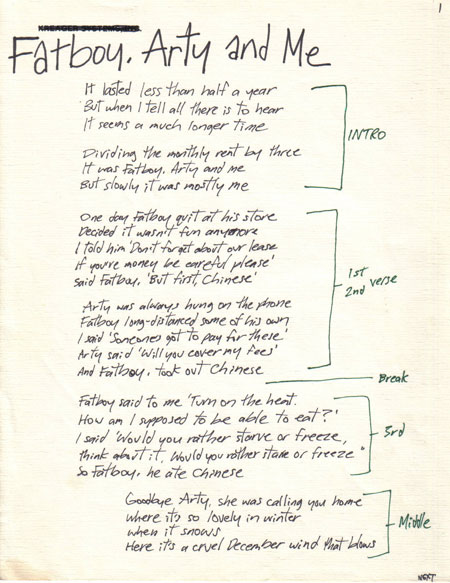 1
Fatboy, Arty and Me
It lasted less than half a year
But when I tell all there is to hear
It seems a much longer time
INTRO
Dividing the monthly rent by three
It was Fatboy, Arty and me
But slowly it was mostly me
One day Fatboy quit at his store
Decided it wasn't fun anymore
I told him 'Don't forget about our lease
If you're money be careful please'
Said Fatboy, 'But first, Chinese'
1st
2nd verse
Arty was always hung on the phone
Fatboy long-distanced some of his own
I said 'Someones got to pay for these'
Arty said 'Will you cover my fees'
And Fatboy, took out Chinese
Break
Fatboy said to me 'Turn on the heat.
How am I supposed to be able to eat?'
I said 'Would you rather starve or freeze,
think about it, Would you rather starve or freeze"
So Fatboy, he ate Chinese
3rd
Goodbye Arty, she was calling you home
where it's so lovely in winter
when it snows
Here it's a cruel December wind that blows
Middle
NEXT